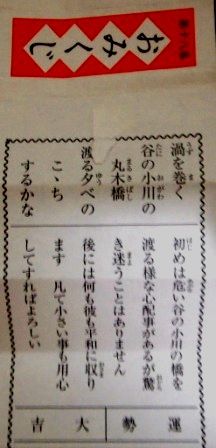 第十八番
おみくじ
渦を巻く
谷の小川の
丸木橋
渡る夕べの
こゝち
するかな
初めは危い谷の小川の橋を
渡る様な心配事があるが驚
き迷うことはありません
後には何も彼も平和に収り
ます 凡て小さい事も用心
してすればよろしい
運勢 大吉